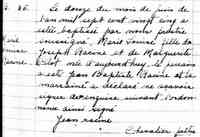 S. 26. Le douze du mois de juin de
l'an mil sept cent vingt cinq a
esté baptisée par mon prestre
soussigné, Marie Louise fille de
Marie Joseph Racine et de Marguerite
Louise Pilot née d'aujourd'huy, le parain
Racine a esté Jean Baptiste Racine et la
marainne a déclaré ne sçavoir
signe de ce enquise suivant l'ordon-
nance ainsi signé
Jean racine
Chevalier prêtre